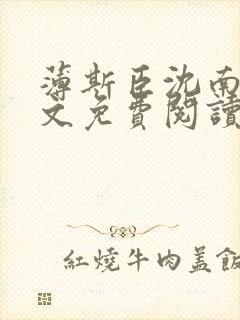 薄斯臣沈南
文免費閱讀
紅燒牛肉蓋飯